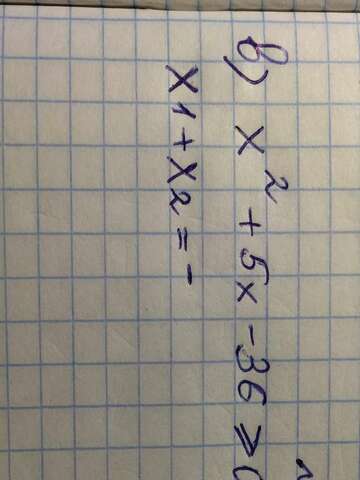 в) x² + 5x - 36 ⩾ 0
x1 + x2 = -